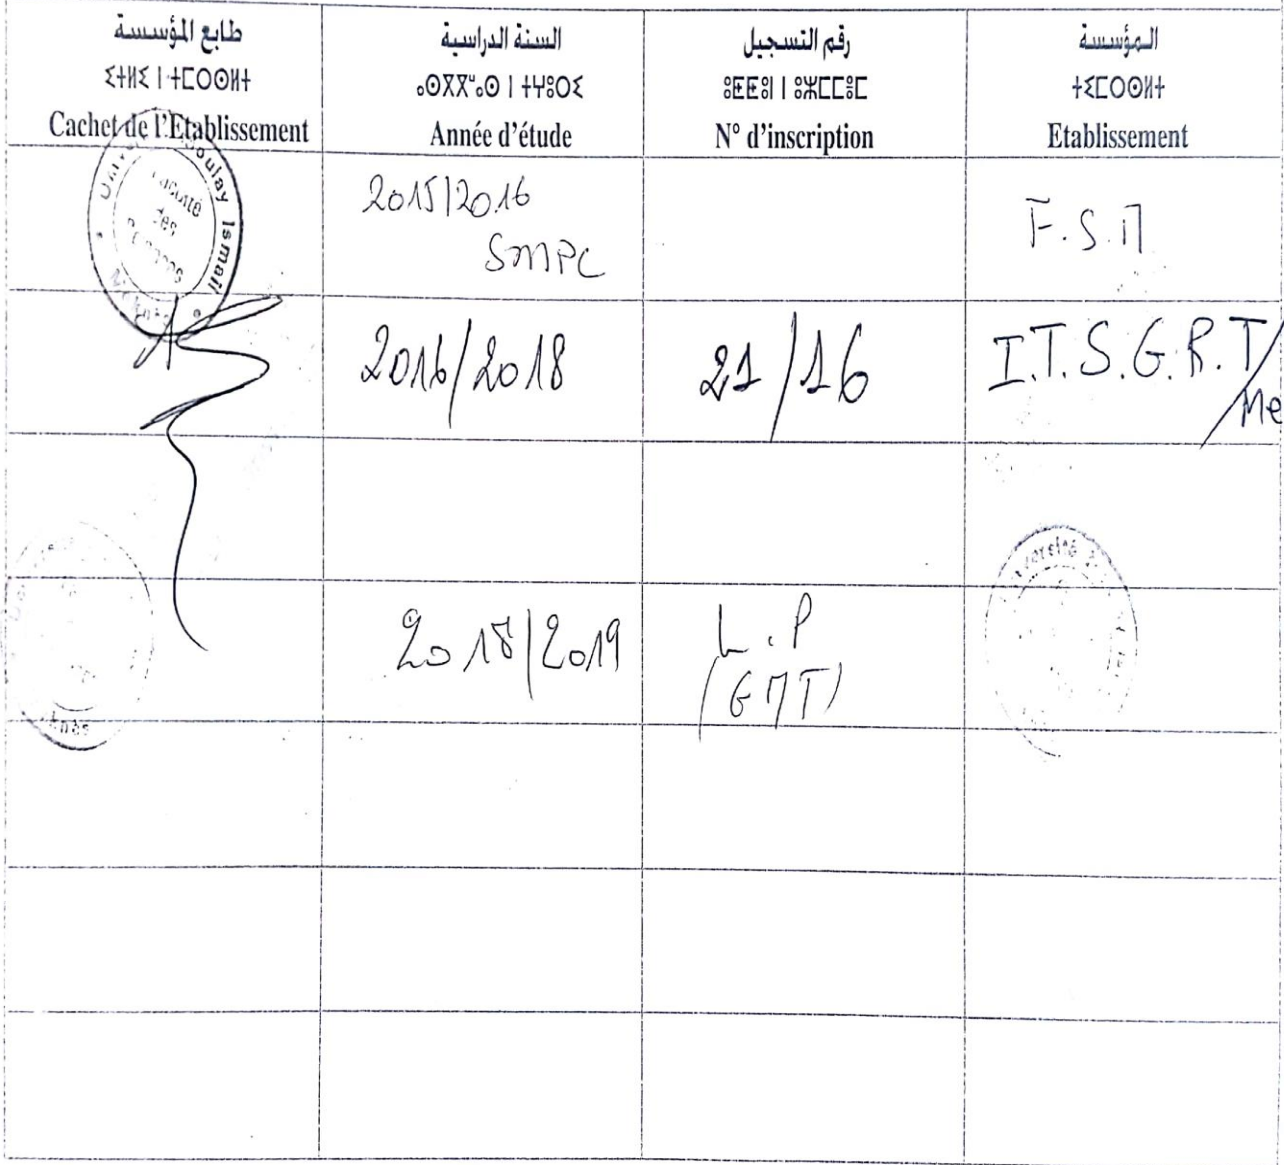 طابع المؤسسة
ⵉⵜⵍⵉ ⵏ ⵜⵎⵔⵙⵍⵜ
Cachet de l'Etablissement
السنة الدراسية
ⴰⵙⴳⴳⵯⴰⵙ ⵏ ⵜⵖⵓⵔⵉ
Année d'étude
رقم التسجيل
ⵓⵟⵟⵓⵏ ⵏ ⵓⵣⵎⵎⵓⵎ
N° d'inscription
المؤسسة
ⵜⵉⵎⵔⵙⵍⵜ
Etablissement
Moulay Ismail
Faculté
des
2015/2016
SMPC
F.S.M
2016/2018
21/16
I.T.S.G.R.T/
Me
2018/2019
L.P
(GMT)
Université